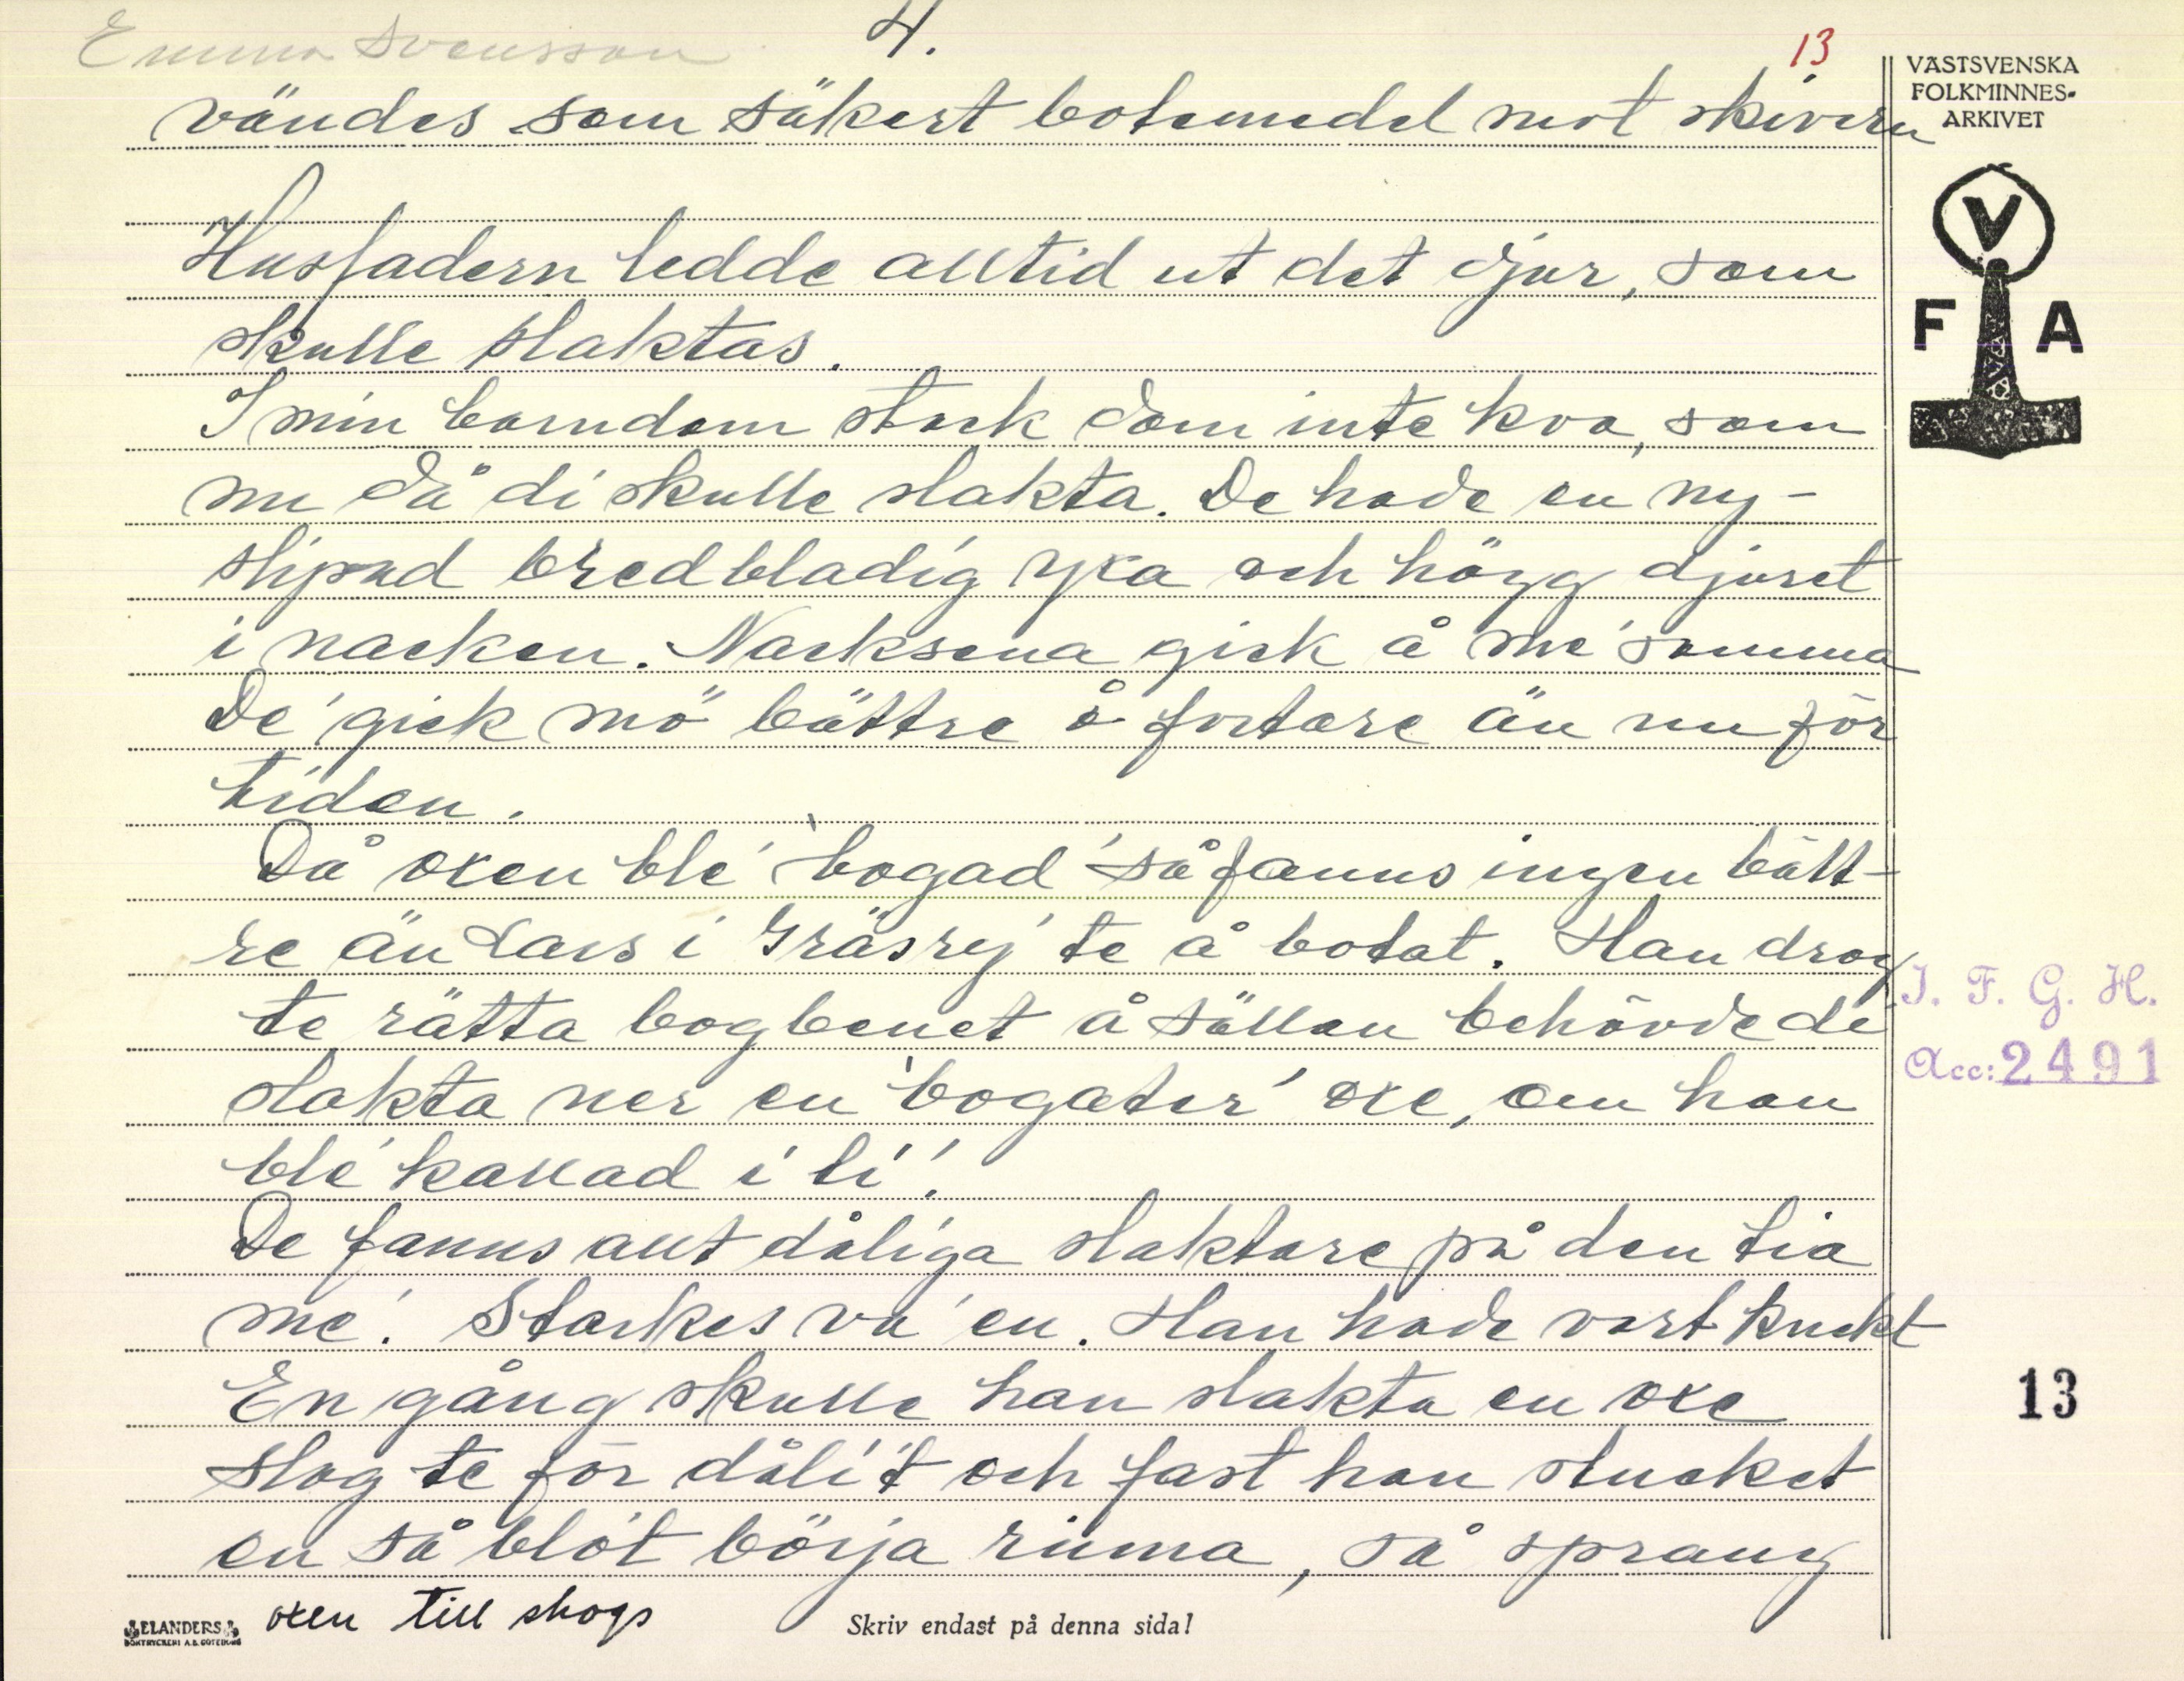 Emma Svensson
4.
13
VÄSTSVENSKA
FOLKMINNES-
ARKIVET
vändes som säkert botemedel mot skivern
V
F A
Husfadern ledde alltid ut det djur, som
skulle slaktas.
I min barndom stack dom inte kva, som
nu då di skulle slakta. De hade en ny-
slipad bredbladig yxa och högg djuret
i nacken. Nacksena gick å me' samma
De' gick mö' bättre å fortare än nu för
tiden.
Då oxen ble' 'bogad' så fanns ingen bätt-
re än Lars i Gräsrej te å botat. Han drog
te rätta bogbenet å sällan behövde de
slakta ner en 'bogater' oxe, om han
ble' kallad i ti'!
De fanns allt dåliga slaktare på den tia
me'. Starkes va' en. Han hade vart knekt
En gång skulle han slakta en oxe
slog te för dåli't och fast han stucket
en så blo't börja rinna, så sprang
oxen till skogs
I. F. G. H.
Acc: 2491
13
ELANDERS
BOKTRYCKERI A.B. GÖTEBORG
Skriv endast på denna sida!